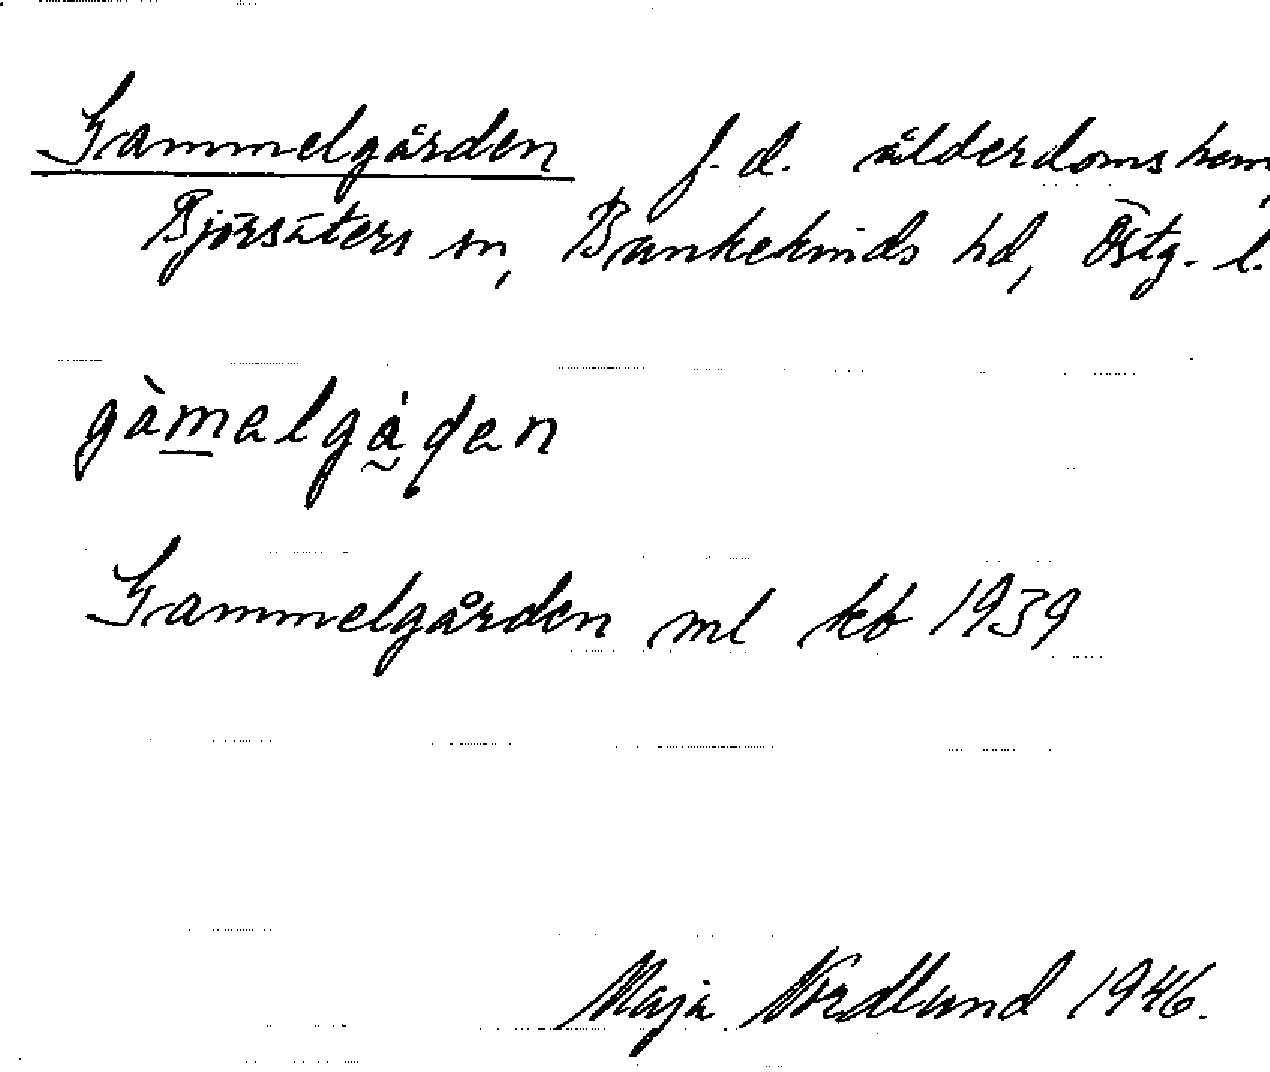 Gammelgården f. d. ålderdomshem,
Björsäters sn, Bankekinds hd, Östg. l.
gàmalgȧ̰ḍan
Gammelgården ml kb 1939
Maja Nordlund 1946.